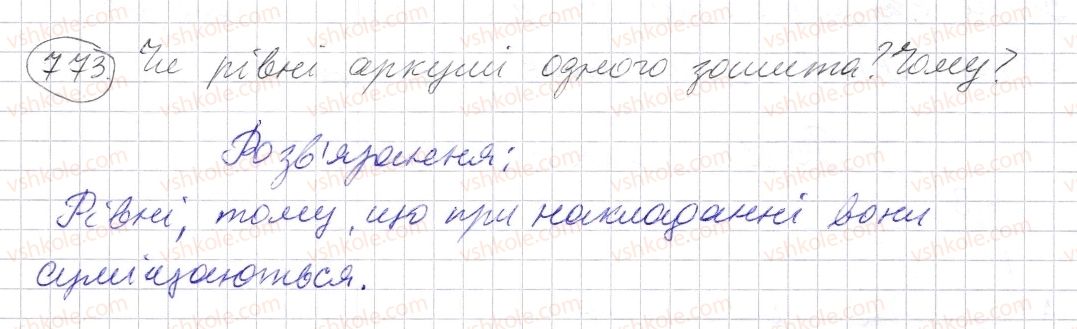 773. Чи рівні аркуші одного зошита? Чому?
Розв'язання:
Рівні, тому, що при накладанні вони
суміщаються.